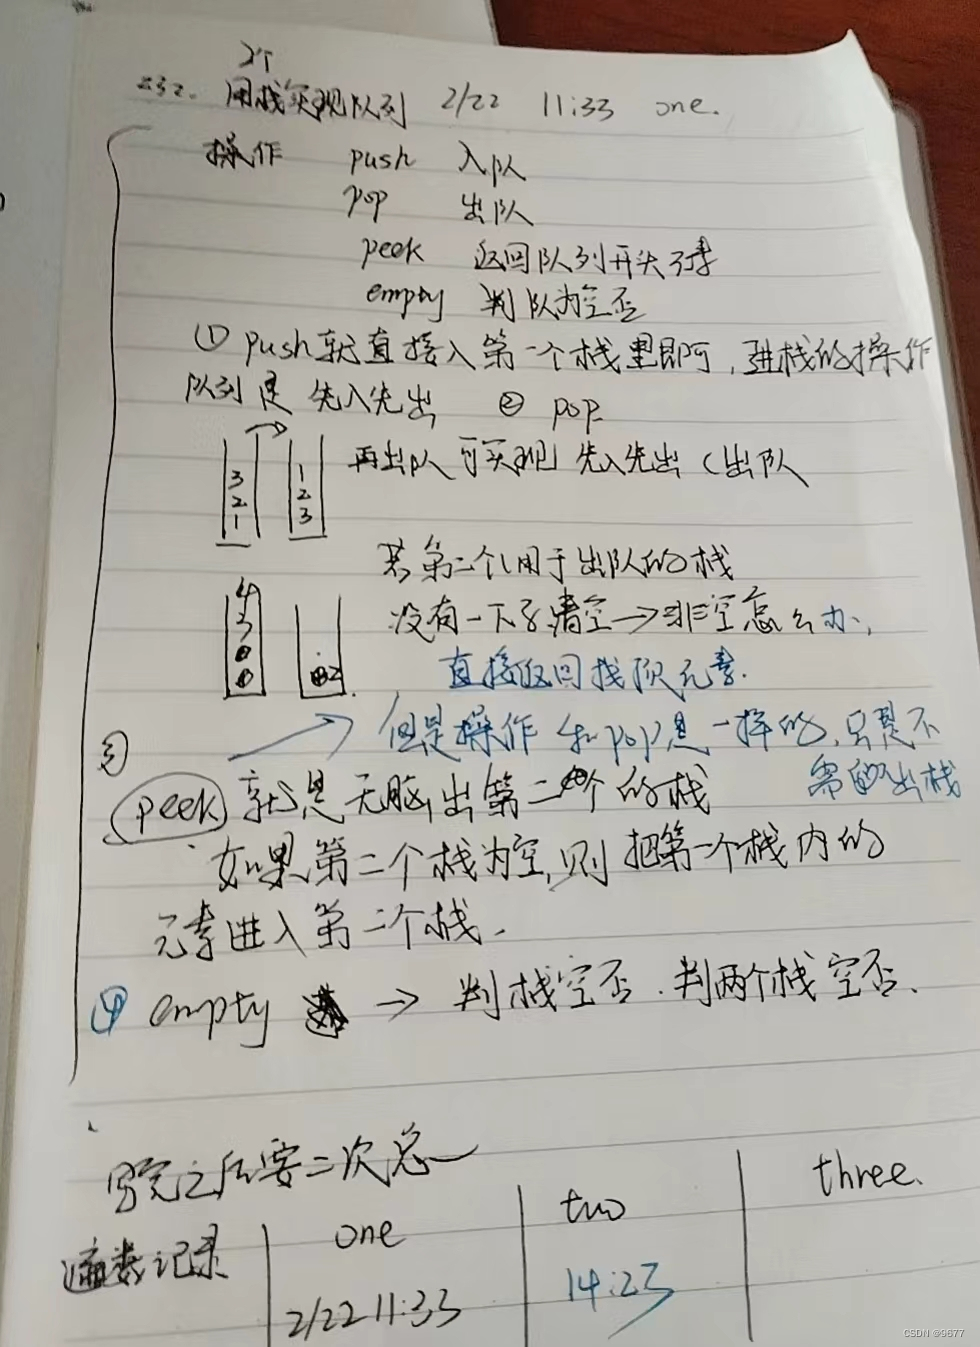 2个
232. 用栈实现队列 2/22 11:33 one.
操作 push 入队
pop 出队
peek 返回队列开头元素
empty 判队为空否
① push就直接入第一个栈里即可，进栈的操作
队列是 先入先出 ② pop
再出队 可实现 先入先出（出队
3 1
2 2
1 3
若第二个用于出队的栈
没有一下子清空→非空怎么办，
直接返回栈顶元素.
4
3
2
但是操作和pop是一样的，只是不
需要出栈
③
peek 就是无脑出第二个的栈
如果第二个栈为空，则把第一个栈内的
元素进入第二个栈.
④ empty → 判栈空否. 判两个栈空否.
写完之后要二次总
遍数记录 one two three.
2/22 11:33 14:23
CSDN @9677